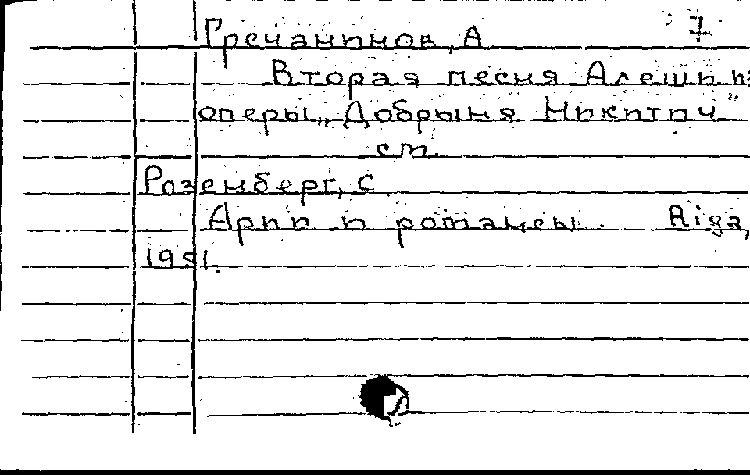 7
Гречанинов, А.
Вторая песня Алеши из
оперы „Добрыня Никитич"
см.
Розенберг, С.
Арии и романсы. Riga,
1951.